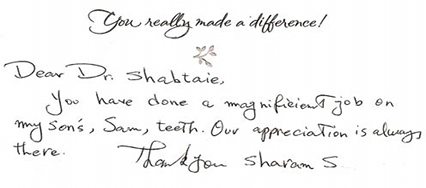 You really made a difference!
Dear Dr. Shabtaie,
You have done a magnificient job on
my son's, Sam, teeth. Our appreciation is always
there. Thank you Sharam S.